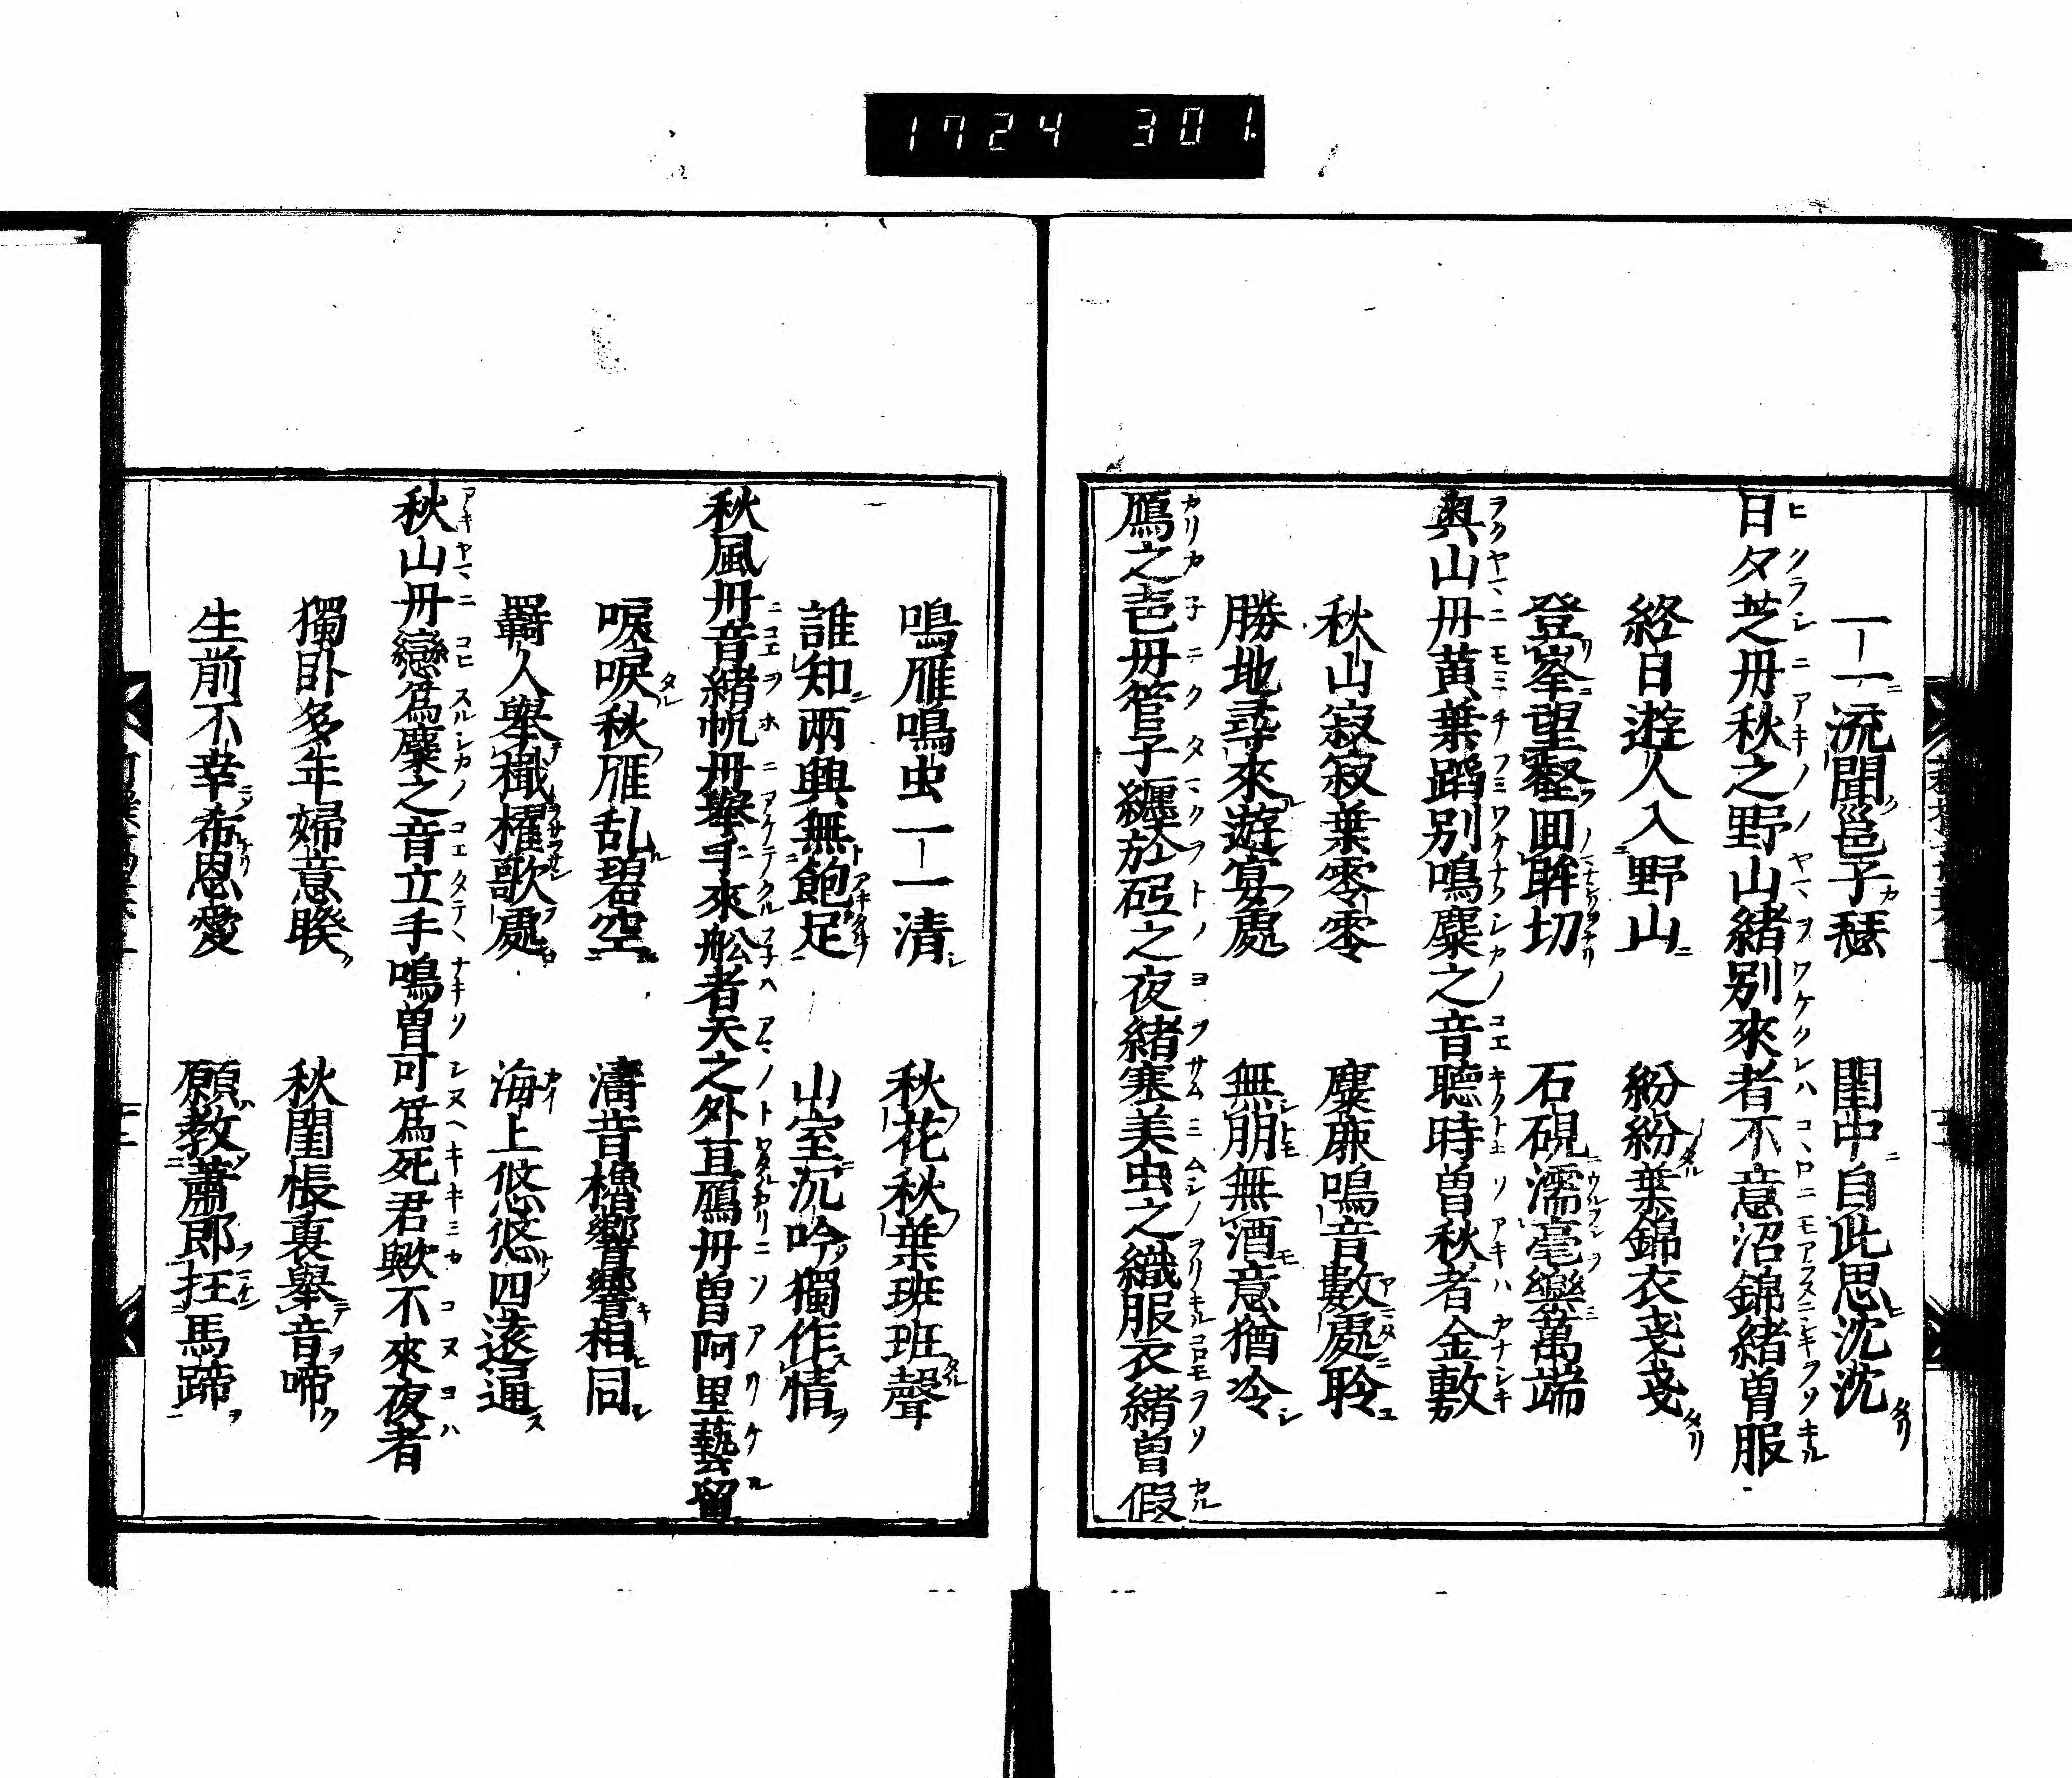 1724 301.
一一流聞邕子瑟　閨中自此思沈沈
日夕芝丹秋之野山緒別來者不意沼錦緒曽服
終日遊人入野山　紛紛葉錦衣戔戔
登峯望壑回眸切　石硯濡毫樂萬端
奥山丹黄葉蹈別鳴麋之音聴時曽秋者金敷
秋山寂寂葉零零　麋鹿鳴音數處聆
勝地尋來遊宴處　無朋無酒意猶冷
鴈之毋管子纏於砌之夜緒塞美虫之織服衣緒曽假
鳴雁鳴虫一一清　秋花秋葉班班聲
誰知兩興無飽足　山室沉吟獨作情
秋風丹音緒帆丹擧手來舩者天之外亙鴈丹曽阿里藝留
唳唳秋雁乱碧空　濤音櫓響響相同
羇人舉檝櫂歌處　海上悠悠四遠通
秋山丹戀爲麋之音立手鳴曽可爲死君歟不來夜者
獨臥多年婦意睽　秋閨帳裏舉音啼
生前不幸希恩愛　願教蕭郎抂馬蹄